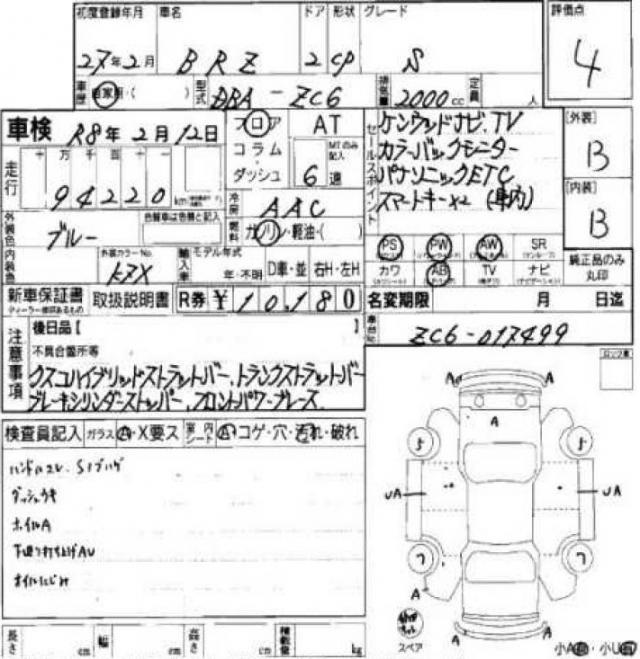 初度登録年月 車名 ドア 形状 グレード 評価点
27年2月 BRZ 2 CP S 4
車歴 自家用・( ) 型式 DBA-ZC6 排気量 2000cc 定員 人
車検 R8年2月12日 フロア AT セールスポイント ケンウッドナビ、TV [外装]
コラム MTのみ記入 カラーバックモニター B
走行 十万千百十一 ダッシュ 6速 パナソニックETC [内装]
94220km 冷房 AAC スマートキー×2 (車内) B
外装色 ブルー 色替車は色替と記入 燃料 ガソリン・軽油・( )
PS PW AW SR 純正品のみ丸印
内装色 外装カラーNo. K7X 輸入車 モデル年式 年・不明 D車・並 右H・左H カワ AB TV ナビ
新車保証書 取扱説明書 R券 ¥10,180 名変期限 月 日迄
ディーラー捺印あるもの
注意事項 後日品[ ] 車台No. ZC6-017499
不具合箇所等
クスコハイブリッドストラットバー、トランクストラットバー
ブレーキシリンダーストッパー、フロントパワーブレース
検査員記入 ガラス A・X要ス 室内シート A コゲ・穴・汚れ・破れ
ハンドルスレ、
ダッシュウキ
ホイルA
下廻り打ち上げAU
オイルにじみ
A A
A
5 5
UA UA
7 7
A A
A A
スペア
長さ cm 幅 cm 高さ cm 積載量 kg
小A 小U